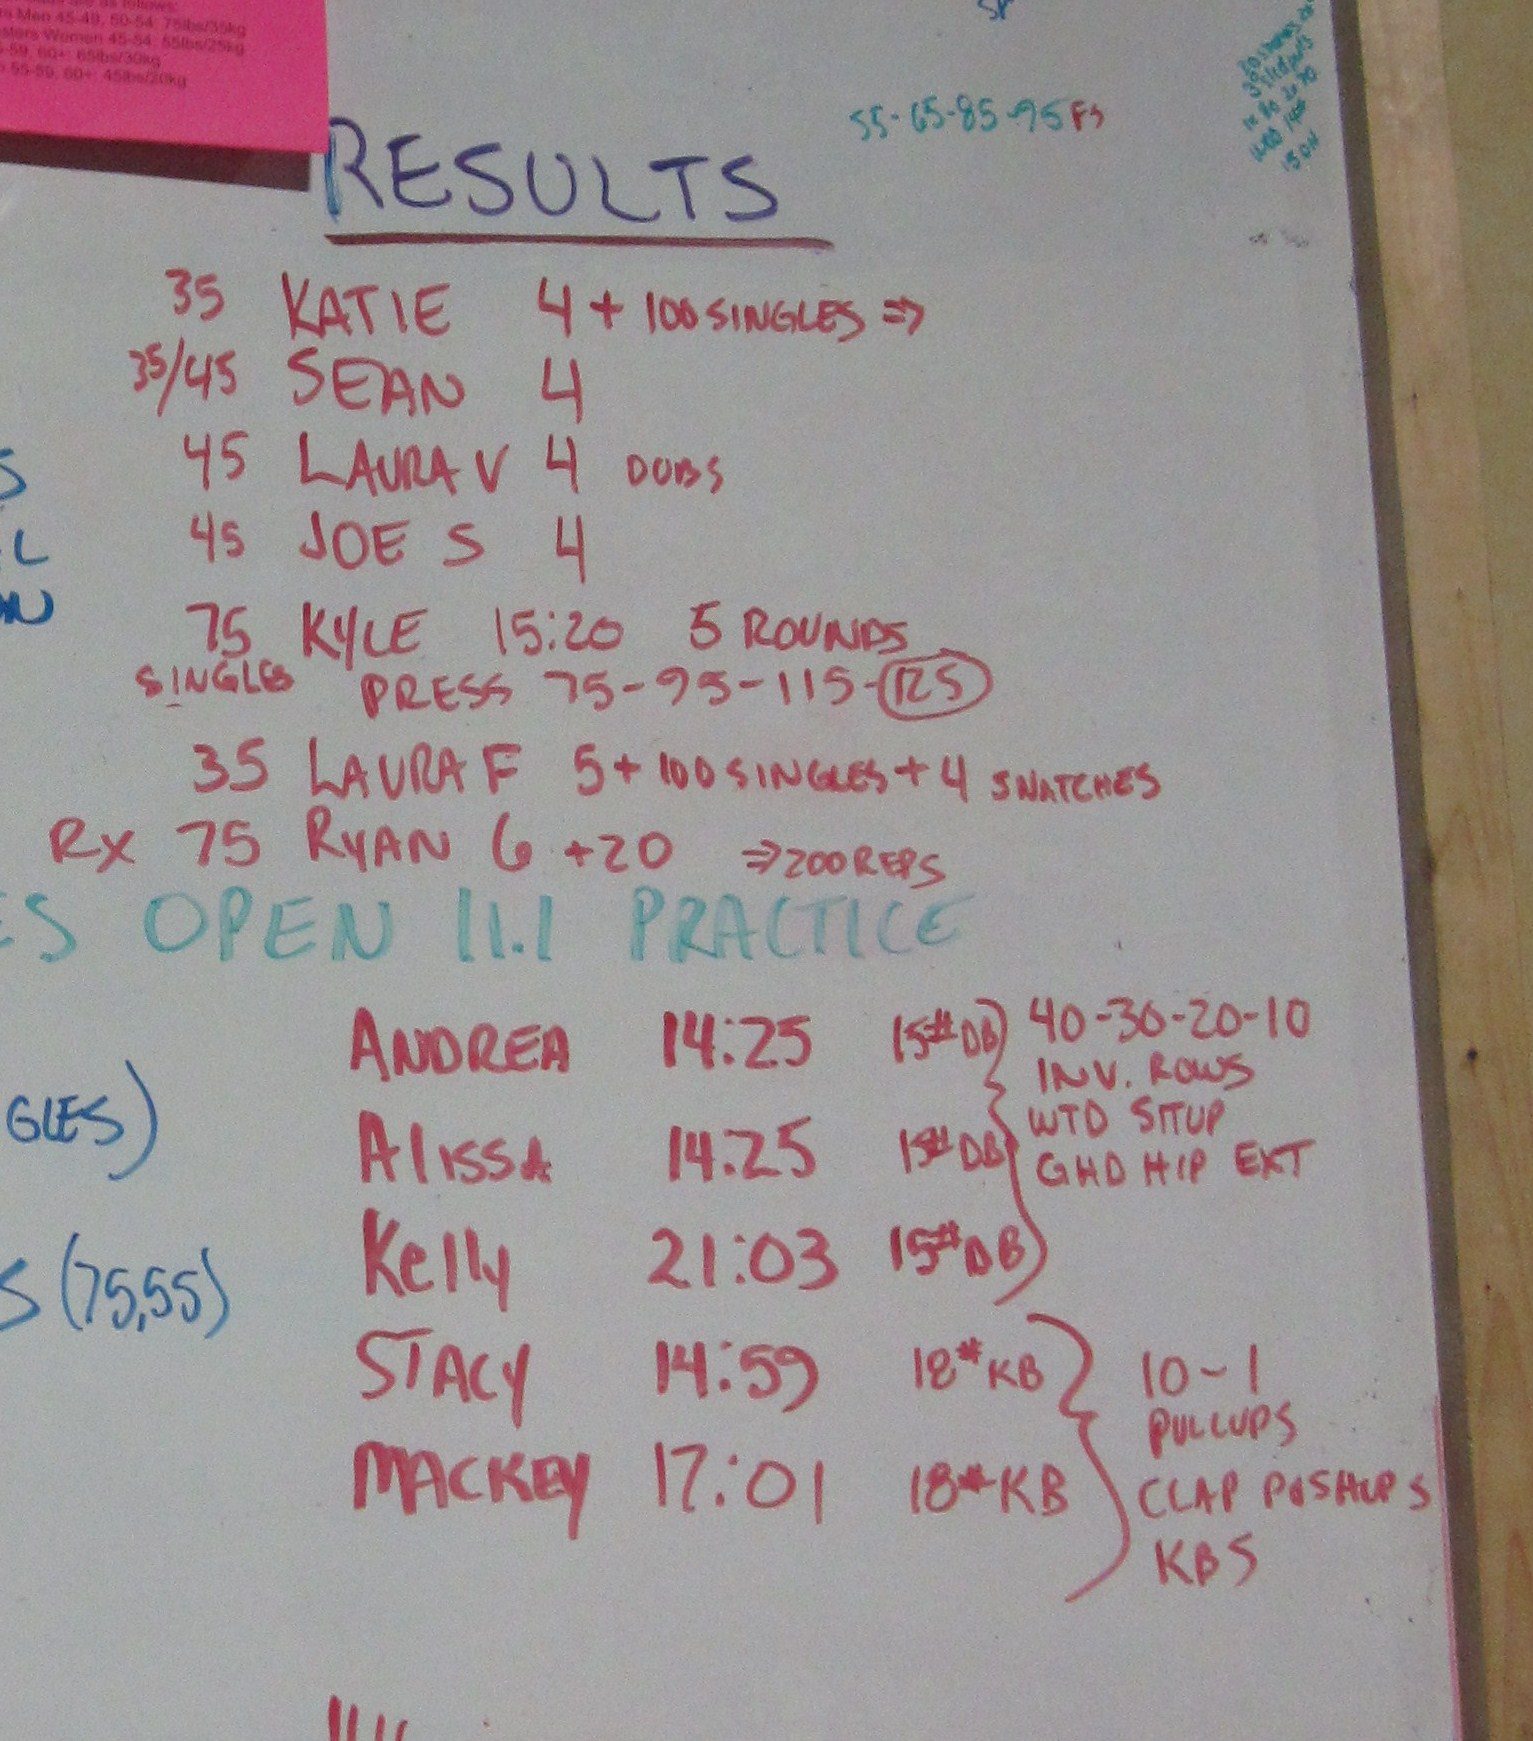 Men 45-49, 50-54: 75lbs/35kg
Women 45-54: 55lbs/25kg
-59, 60+: 65lbs/30kg
55-59, 60+: 45lbs/20kg
55-65-85-95 FS
RESULTS
35 KATIE 4 + 100 SINGLES ⇒
35/45 SEAN 4
45 LAURA V 4 DUBS
45 JOE S 4
75 KYLE 15:20 5 ROUNDS
SINGLES PRESS 75-95-115-125
35 LAURA F 5 + 100 SINGLES + 4 SNATCHES
Rx 75 RYAN 6 +20 ⇒ 200 REPS
ES OPEN 11.1 PRACTICE
ANDREA 14:25 15# DB
40-30-20-10
INV. ROWS
WTD SITUP
GHD HIP EXT
GLES)
Alissa 14:25 15# DB
Kelly 21:03 15# DB
S (75,55)
STACY 14:59 18# KB
10-1
PULLUPS
CLAP PUSHUPS
KBS
MACKEY 17:01 18# KB